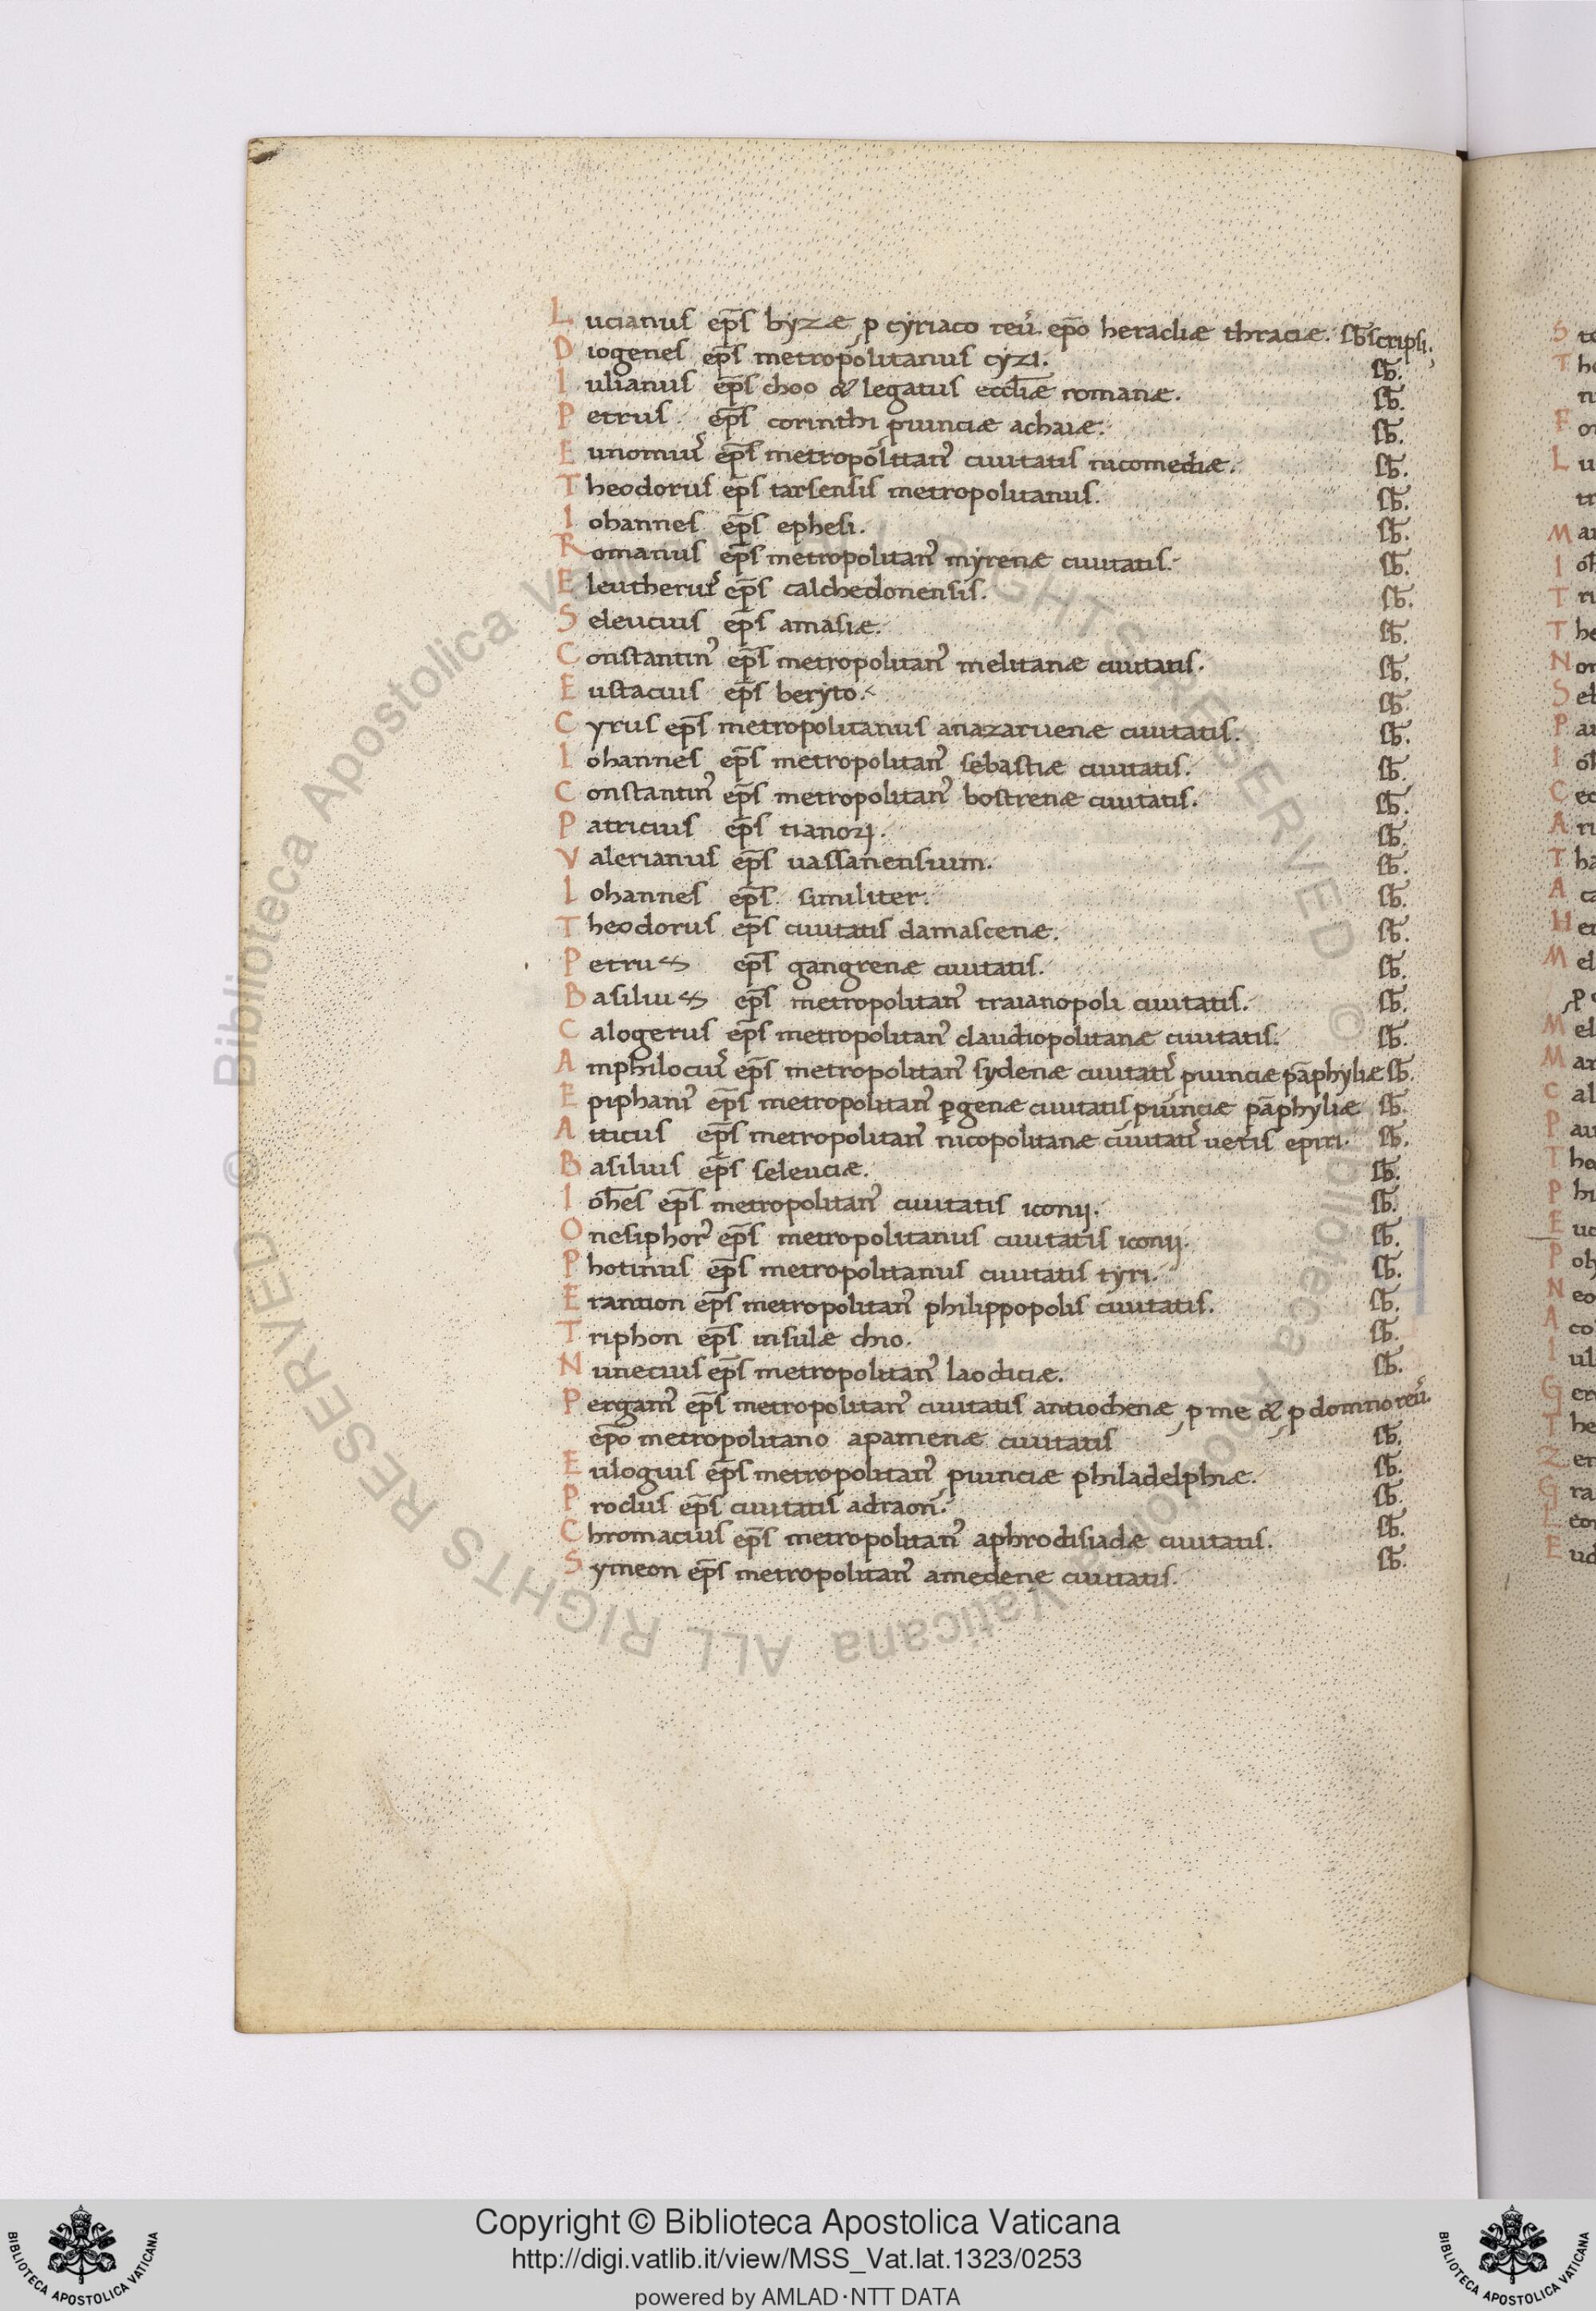 Lucianus ep̄s byzæ ꝓ cyriaco reū ep̄o heracliæ thraciæ. sb̄scripsi.
Diogenes ep̄s metropolitanus cyzi. sb̄.
Iulianus ep̄s choo & legatus eccl̄iæ romanæ. sb̄.
Petrus ep̄s corinthi ꝓuinciæ achaiæ. sb̄.
Eunomiuˢ ep̄s metropolitan᾽ ciuitatis nicomediæ. sb̄.
Theodorus ep̄s tarsensis metropolitanus. sb̄.
Iohannes ep̄s ephesi. sb̄.
Romanus ep̄s metropolitan᾽ myrenæ ciuitatis. sb̄.
Eleutheruˢ ep̄s calchedonensis. sb̄.
Seleucius ep̄s amasiæ. sb̄.
Constantin᾽ ep̄s metropolitan᾽ melitanæ ciuitatis. sb̄.
Eustacius ep̄s beryto. sb̄.
Cyrus ep̄s metropolitanus anazaruenæ ciuitatis. sb̄.
Iohannes ep̄s metropolitan᾽ sebastiæ ciuitatis. sb̄.
Constantin᾽ ep̄s metropolitan᾽ bostrenæ ciuitatis. sb̄.
Patricius ep̄s tianoꝝ. sb̄.
Valerianus ep̄s uassanensium. sb̄.
Iohannes ep̄s similiter. sb̄.
Theodorus ep̄s ciuitatis damascenæ. sb̄.
Petrus ep̄s gangrenæ ciuitatis. sb̄.
Basilius ep̄s metropolitan᾽ traianopoli ciuitatis. sb̄.
Calogerus ep̄s metropolitan᾽ claudiopolitanæ ciuitatis. sb̄.
Amphilociuˢ ep̄s metropolitan᾽ sydenæ ciuitatiˢ ꝓuinciæ pāphyliæ sb̄.
Epiphani᾽ ep̄s metropolitan᾽ ꝑgenæ ciuitatis ꝓuinciæ pāphyliæ sb̄.
Atticus ep̄s metropolitan᾽ nicopolitanæ ciuitatiˢ ueteris epiri. sb̄.
Basilius ep̄s seleuciæ. sb̄.
Ioh̄es ep̄s metropolitan᾽ ciuitatis iconij. sb̄.
Onesiphor᾽ ep̄s metropolitanus ciuitatis iconij. sb̄.
Photinus ep̄s metropolitanus ciuitatis tyri. sb̄.
Erantion ep̄s metropolitan᾽ philippopolis ciuitatis. sb̄.
Triphon ep̄s insulæ chio. sb̄.
Nunecius ep̄s metropolitan᾽ laodiciæ. sb̄.
Pergam᾽ ep̄s metropolitan᾽ ciuitatis antiochenæ ꝓ me & ꝓ domno reū.
ep̄o metropolitano apamenæ ciuitatis sb̄.
Eulogius ep̄s metropolitan᾽ ꝓuinciæ philadelphiæ. sb̄.
Proclus ep̄s ciuitatis adraon᾽. sb̄.
Chromacius ep̄s metropolitan᾽ aphrodisiadæ ciuitatis. sb̄.
Symeon ep̄s metropolitan᾽ amedenę ciuitatis. sb̄.
© Biblioteca Apostolica Vaticana ALL RIGHTS RESERVED © Biblioteca Apostolica Vaticana ALL RIGHTS RESERVED
Copyright © Biblioteca Apostolica Vaticana
http://digi.vatlib.it/view/MSS_Vat.lat.1323/0253
powered by AMLAD·NTT DATA
BIBLIOTECA APOSTOLICA VATICANA
BIBLIOTECA APOSTOLICA VATICANA